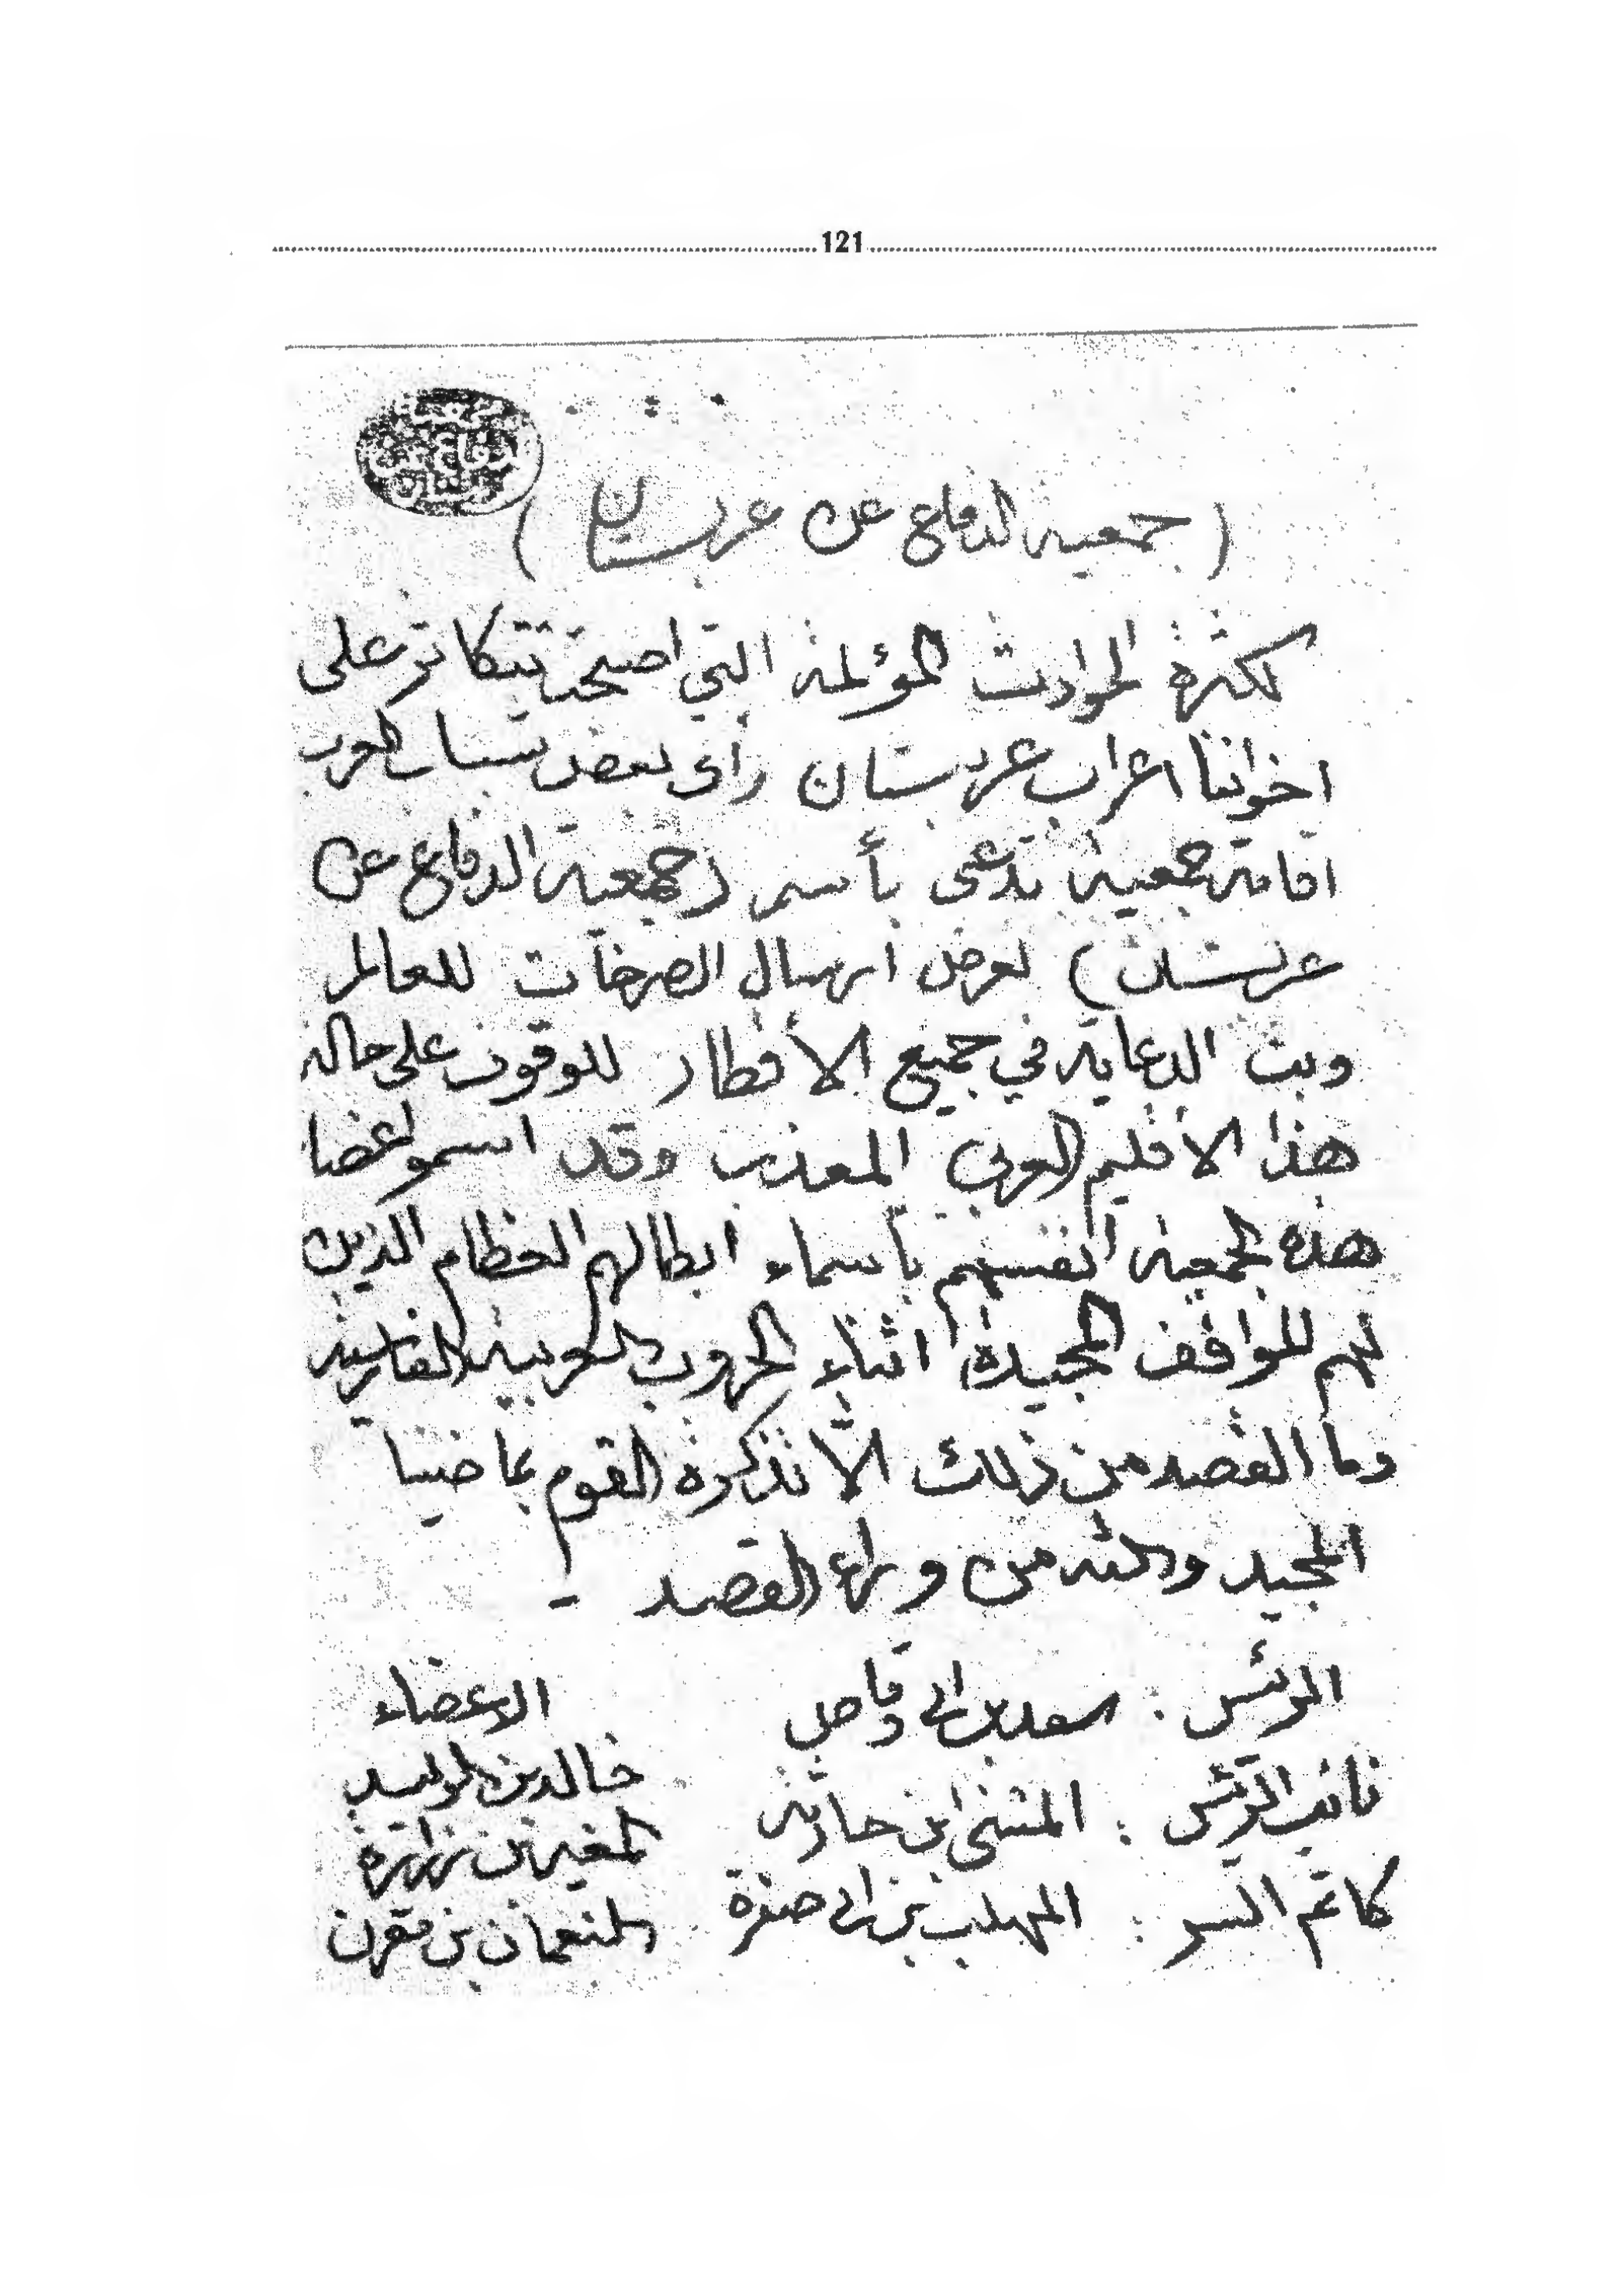 121
(جمعية الدفاع عن عربستان)
لكثرة الحوادث المؤلمة التي اصبحت تتكاثر على
اخواننا اعراب عربستان رأى بعض شباب العرب
اقامة جمعية تدعى بأسم (جمعية الدفاع عن
عربستان) لغرض ارسال الصرخات للعالم
وبث الدعاية في جميع الأقطار للوقوف على حالة
هذا الأقليم العربي المعذب وقد اسمو اعضا
هذه الجمعية انفسهم بأسماء ابطالهم العظام الذين
لهم المواقف المجيدة اثناء الحروب العربية الفارسية
وما القصد من ذلك الّا تذكرة القوم بماضينا
المجيد والله من وراء القصد -
الرئس : سعد بن ابي وقاص
نائب الرئس : المثنى ابن حارثة
كاتم السر : المهلب بن ابي صفرة
الاعضاء
خالد بن الوليد
المغيرة بن زرارة
النعمان بن مقرن